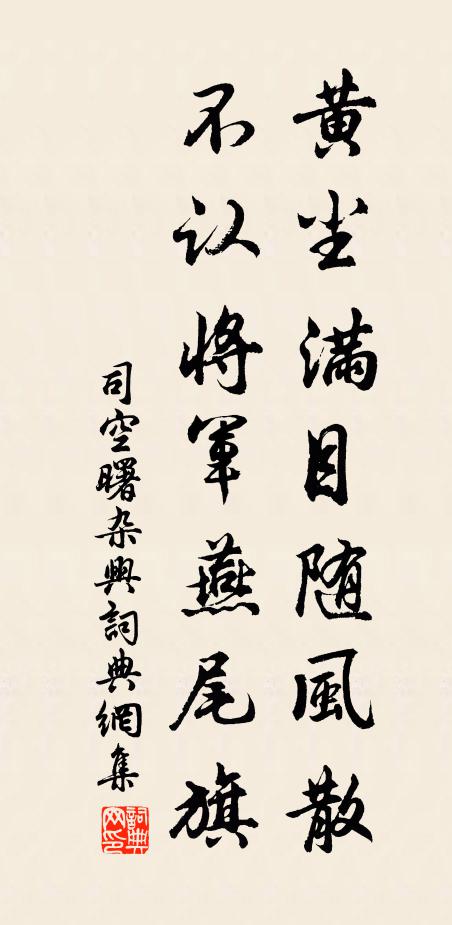 黄尘满目随風散
不认將軍燕尾旗
司空曙杂興詞典網集
詞典网印